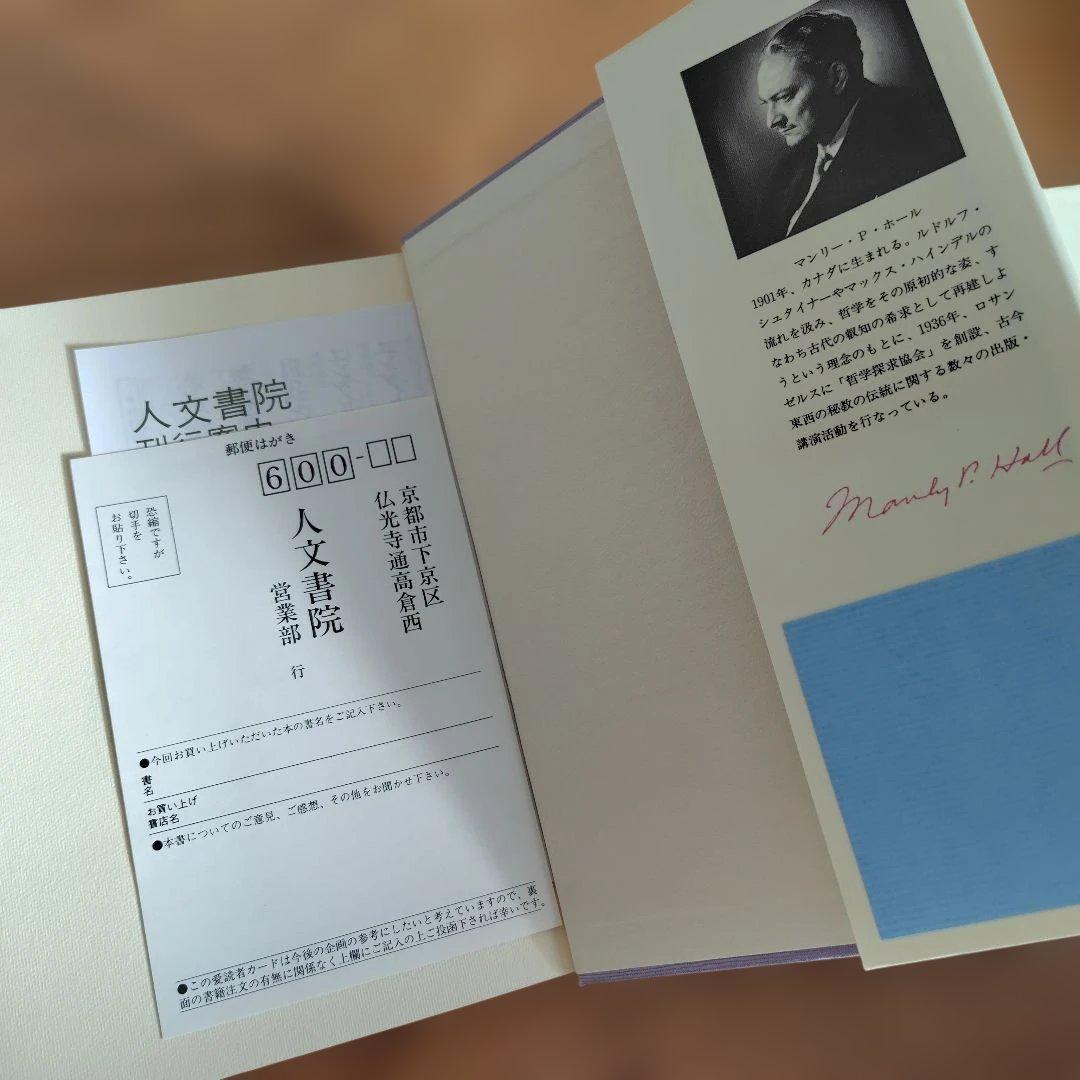 人文書院
刊行案内
郵便はがき
600-□□
京都市下京区
仏光寺通高倉西
人文書院
営業部
行
恐縮ですが
切手を
お貼り下さい。
●今回お買い上げいただいた本の書名をご記入下さい。
書
名
お買い上げ
書店名
●本書についてのご意見、ご感想、その他をお聞かせ下さい。
●この愛読者カードは今後の企画の参考にしたいと考えていますので、裏
面の書籍注文の有無に関係なく上欄にご記入の上ご投函下されば幸いです。
マンリー・P・ホール
1901年、カナダに生まれる。ルドルフ・
シュタイナーやマックス・ハインデルの
流れを汲み、哲学をその原初的な姿、す
なわち古代の叡知の希求として再建しよ
うという理念のもとに、1936年、ロサン
ゼルスに「哲学探求協会」を創設、古今
東西の秘教の伝統に関する数々の出版・
講演活動を行なっている。
Manly P. Hall